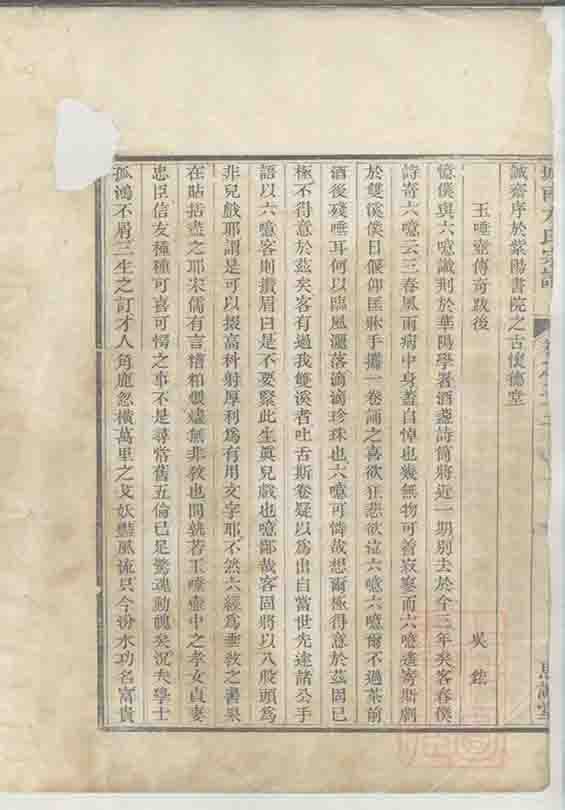 誠齋序於紫陽書院之古懷德堂
玉唾壺傳奇跋後
吳鋐
憶僕與六噫識荆於華陽學署酒盞詩筒將近一期別去於今三年矣客春僕
詩寄六噫云三春風雨病中身蓋自悼也幾無物可善寂寥而六噫遠寄新劇
於雙溪僕日偃仰匡牀手攜一卷誦之喜欲狂悲欲泣六噫六噫爾不過茶前
酒後殘唾耳何以臨風灑落滴滴珍珠也六噫可憐哉想爾極得意於茲固已
極不得意於茲矣客有過我雙溪者吐舌斯卷疑以為出自當世先逹諸公手
語以六噫客則攢眉曰是不要緊此生眞兒戲也噫鄙哉客固將以八股頭為
非兒戲耶謂是可以掇高科射厚利為有用文字耶不然六經為垂敎之書果
在貼括盡之耶宋儒有言糟粕煨燼無非敎也間執若玉唾壺中之孝女貞妻
忠臣信友種種可喜可愕之事不是尋常舊五倫已足驚魂動魄矣况矣學士
孤鴻不屑三生之訂才人角鹿忽橫萬里之艾妖豔風流只今汾水功名富貴